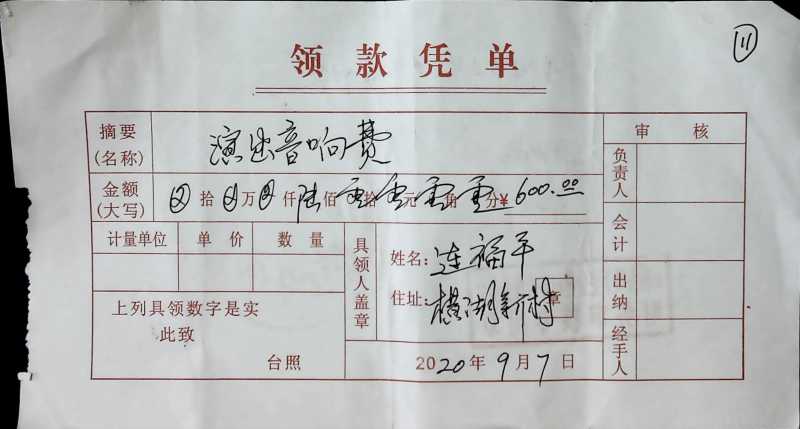 11
领款凭单
摘要
(名称)
演出音响费
审核
金额
(大写)
拾万仟陆佰零拾零元零角零分¥600.00
负责人
计量单位 单价 数量
具领人盖章
姓名:连福平
会计
上列具领数字是实
此致
台照
住址:横湖新村
章
出纳
经手人
2020年9月7日